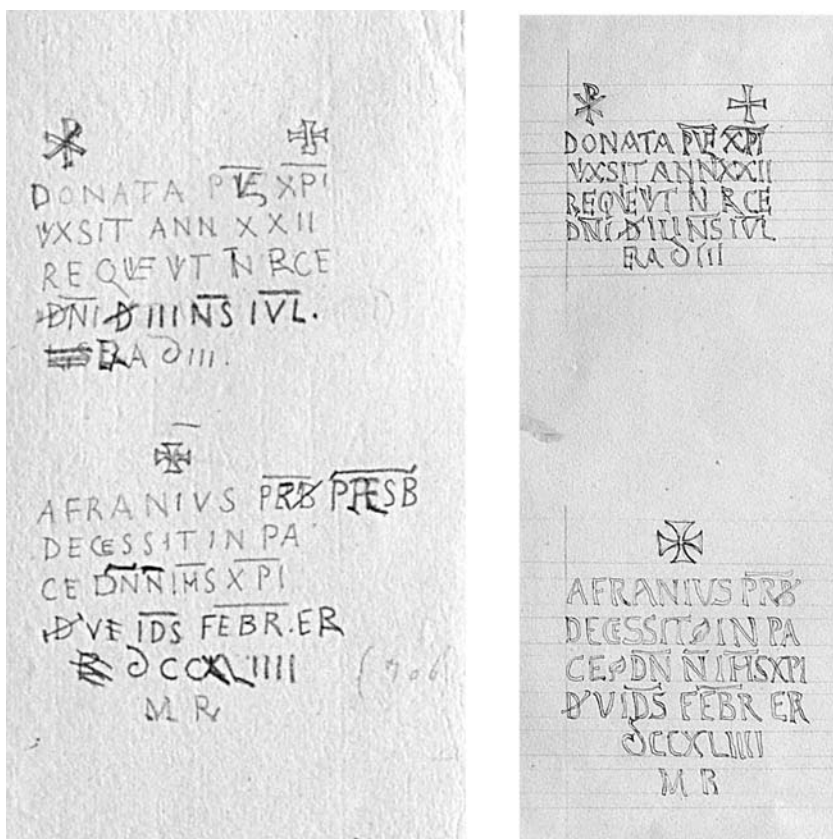 DONATA PVE XPI
VXSIT ANN XXII
REQVEVT N RCE
DNI D III NS IVL.
ERA ∂III.
AFRANIVS PRB PRESB
DECESSIT IN PA
CE DNNIHS XPI
D VE IDS FEBR. ER
∂CCXLIIII (706
M R
DONATA PVE XPI
VXSIT ANN XXII
REQVEVT N RCE
DNI D III NS IVL
ERA ∂III
AFRANIVS PRB
DECESSIT IN PA
CE DN N IHS XPI
D V IDS FEBR ER
∂CCXLIIII
M R